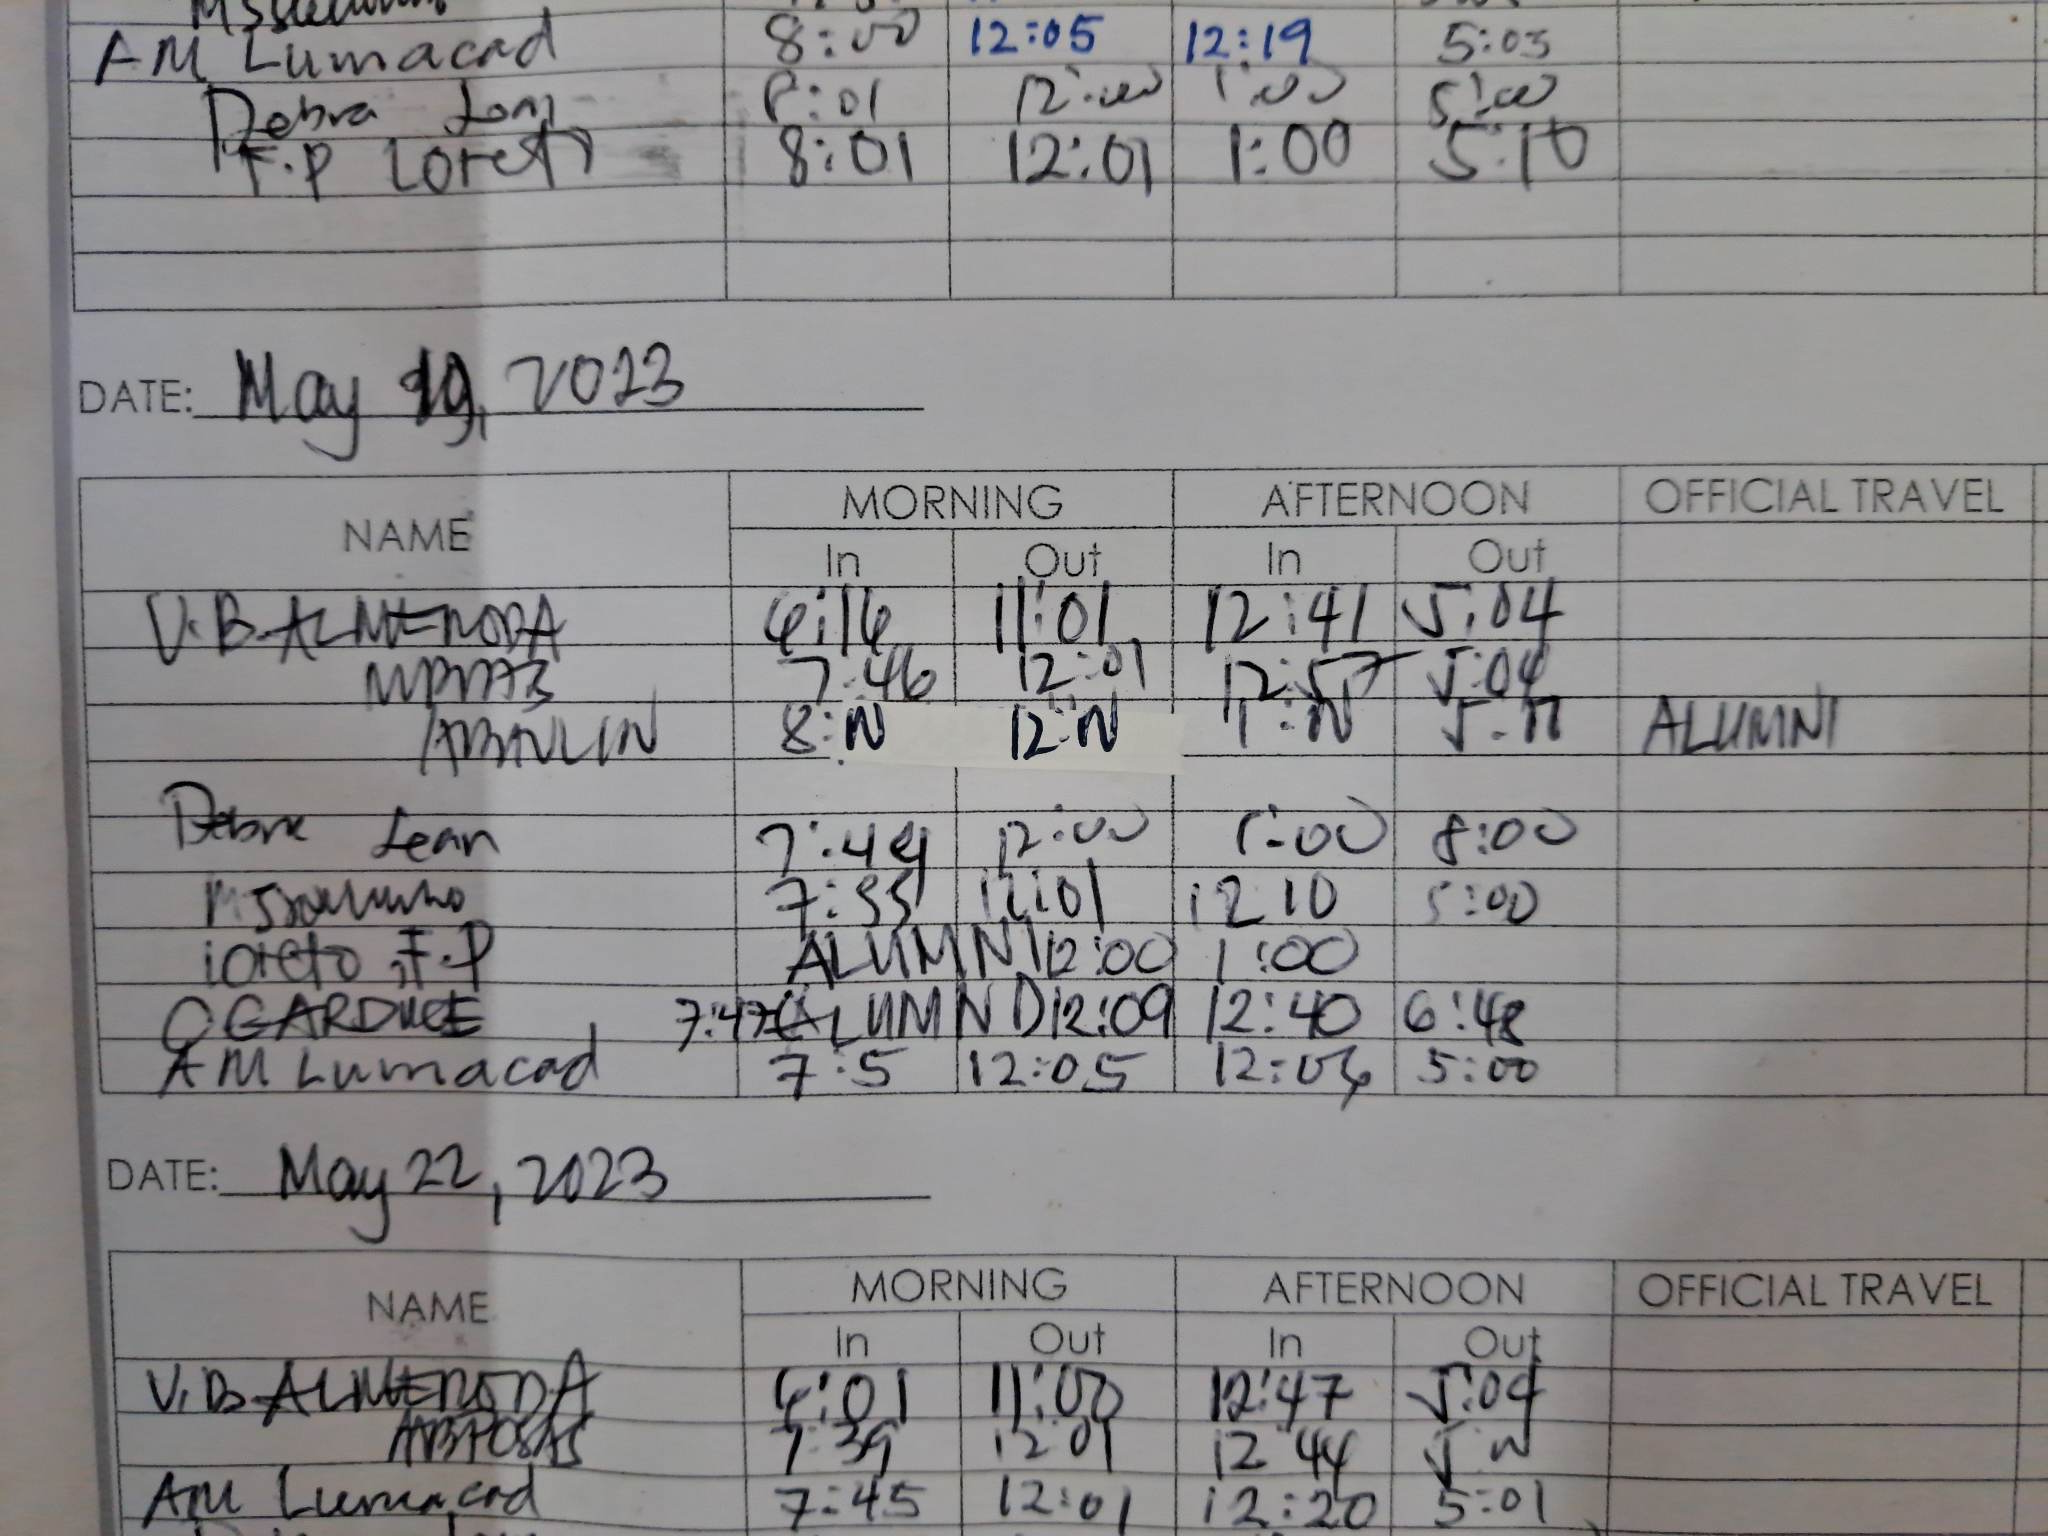 AM Lumacad 8:00 12:05 12:19 5:03
Debra 8:01 12:00 1:00 5:00
F.P Loreto 8:01 12:01 1:00 5:10
DATE: May 19, 2023
NAME MORNING AFTERNOON OFFICIAL TRAVEL
In Out In Out
V.B. ALMENODA 6:16 11:01 12:41 5:04
7:46 12:01 12:57 5:04
8:N 12:N 1:N 5:N ALUMNI
Debra Lean 7:44 12:00 1:00 8:00
7:55 12:01 12 10 5:00
Loreto, F.P ALUMNI 12:00 1:00
O GARDUCE 7:47 (ALUMNI) 12:09 12:40 6:48
AM Lumacad 7:5 12:05 12:06 5:00
DATE: May 22, 2023
NAME MORNING AFTERNOON OFFICIAL TRAVEL
In Out In Out
V.B. ALMENODA 6:01 11:00 12:47 5:04
ABPOSAS 7:39 12 01 12 44 5 N
AM Lumacad 7:45 12:01 12:20 5:01